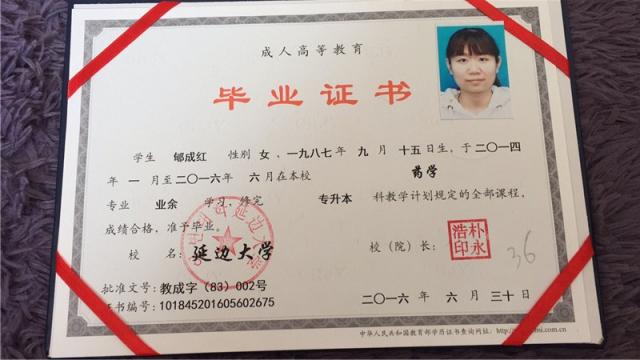 成人高等教育
毕业证书
学生 郇成红 性别 女、一九八七年 九月 十五日生，于二〇一四
年 一月至二〇一六年 六月在本校 药学
专业 业余 学习，修完 专升本 科教学计划规定的全部课程，
成绩合格，准予毕业。
校 名：延边大学 校（院）长：
朴永浩印
36
批准文号：教成字（83）002号
证书编号：101845201605602675 二〇一六年 六月 三十日
中华人民共和国教育部学历证书查询网址：